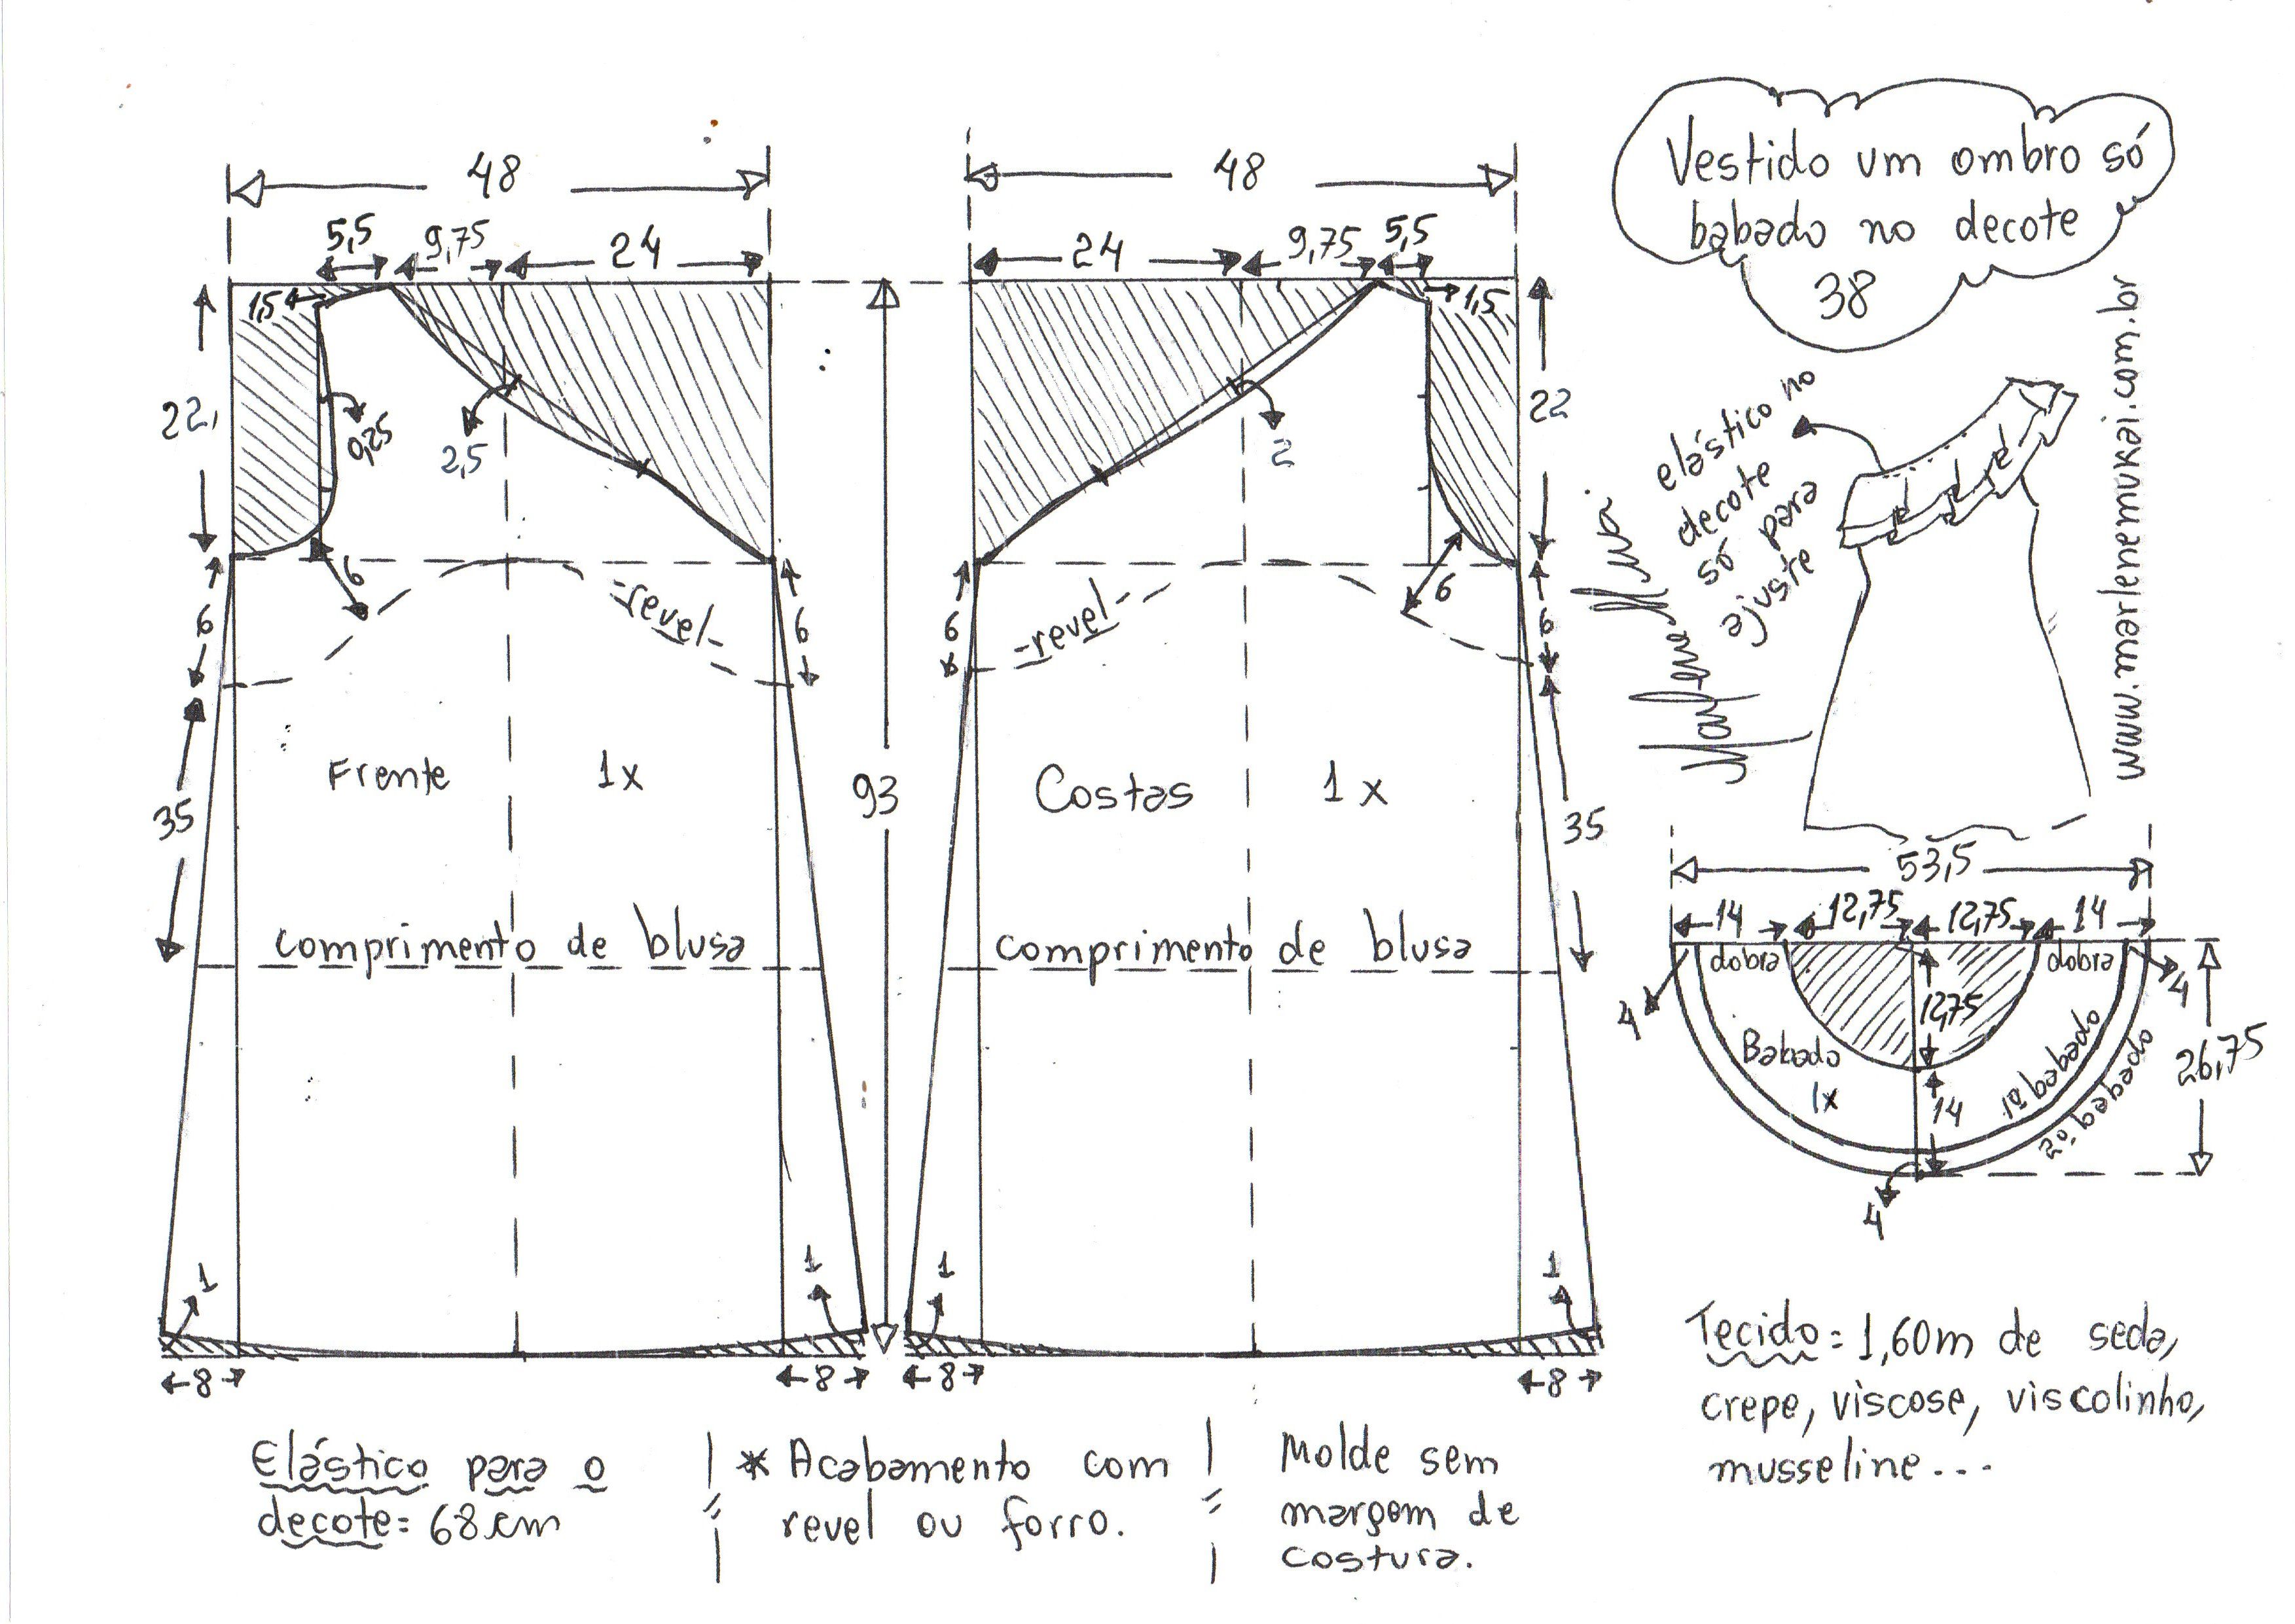 48
5,5
9,75
24
1,5
22,
9,25
2,5
6
6
-revel-
6
35
Frente 1x
comprimento de blusa
1
1
8
8
93
48
24
9,75
5,5
1,5
22
2
6
6
-revel-
6
35
Costas 1x
comprimento de blusa
1
1
8
8
Vestido um ombro só
babado no decote
38
elástico no
decote
só para
ajuste
www.marlenemukai.com.br
53,5
14
12,75
12,75
14
dobra
dobra
4
4
12,75
Babado
1x
14
1º babado
2º babado
26,75
4
Tecido = 1,60m de seda,
crepe, viscose, viscolinho,
musseline...
Elástico para o
decote = 68cm
* Acabamento com
revel ou forro.
Molde sem
margem de
costura.